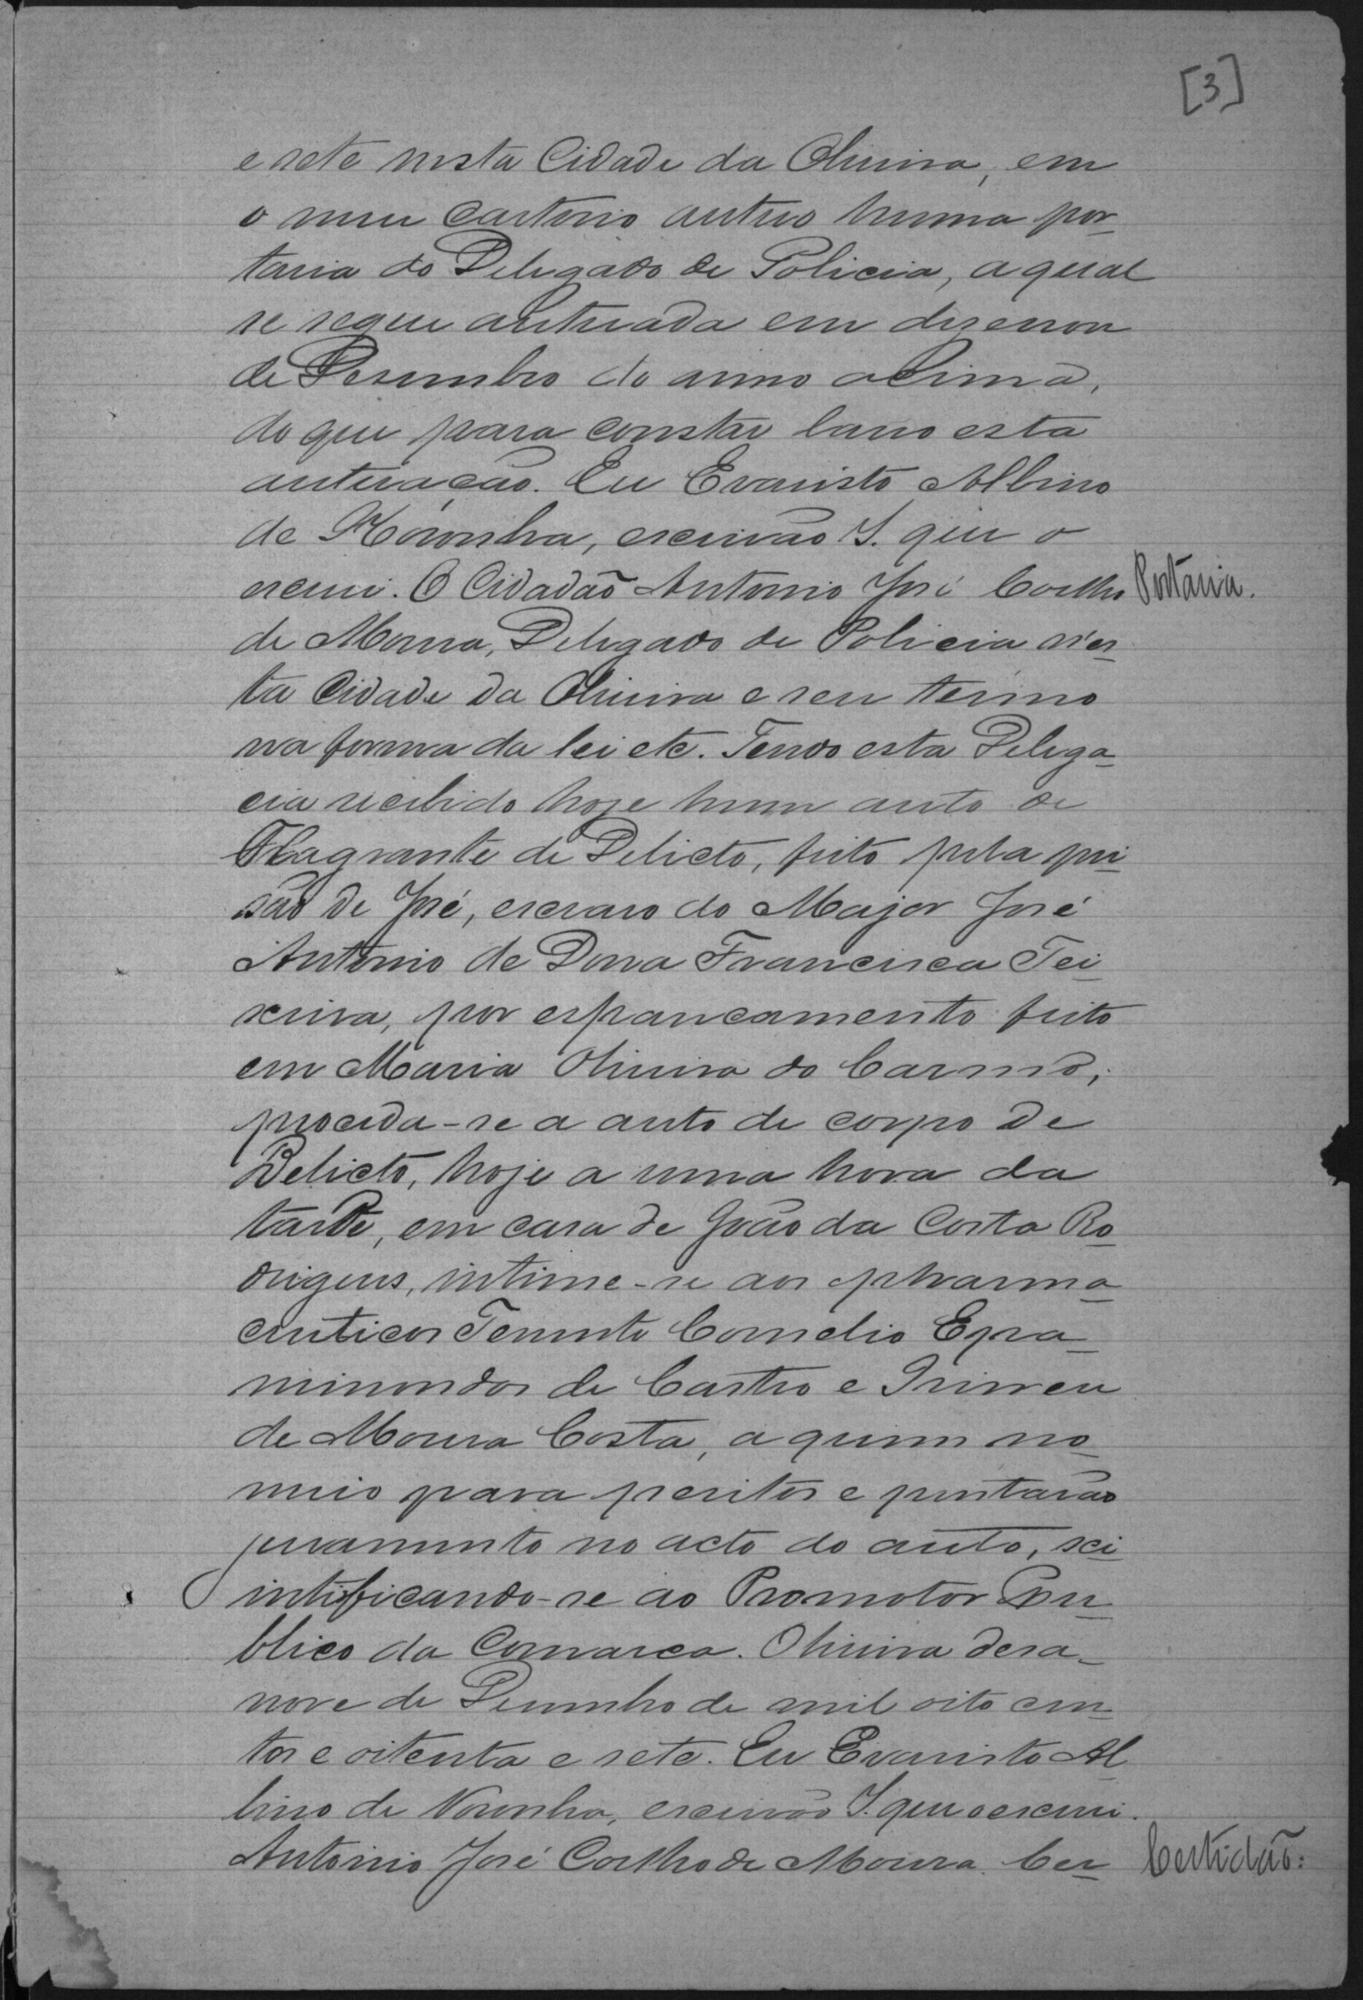 [3]
e sete nesta Cidade da Oliveira, em
o meu cartorio autuo huma por_
taria do Delegado de Policia, a qual
se segue autuada em dezenove
de Desembro do anno acima,
do que para constar lavro esta
autuação. Eu Evaristo Albino
de Noronha, escrivão I. que o
escrevi. O Cidadão Antonio José Coelho
Portaria.
de Moura, Delegado de Policia n'es_
ta Cidade da Oliveira e seu termo
na forma da lei etc. Tendo esta Delega_
cia recebido hoje hum auto de
Flagrante de Delicto, feito pela pri_
são de José, escravo do Major José
Antonio de Dona Francisca Tei_
xeira, por espancamento feito
em Maria Oliveira do Carmo,
proceda-se a auto de corpo de
Delicto, hoje a uma hora da
tarde, em casa de João da Costa Ro_
drigues, intime-se aos pharma_
ceuticos Tenente Cornelio Epa_
minondas de Castro e Irineu
de Moura Costa, a quem no_
meio para peritos e prestarão
juramento no acto do auto, sci_
intificando-se ao Promotor Pu_
blico da Comarca. Oliveira desa_
nove de Desembro de mil oito cen_
tos e oitenta e sete. Eu Evaristo Al_
bino de Noronha, escrivão I. que o escrevi.
Antonio José Coelho de Moura. Cer_
Certidão: